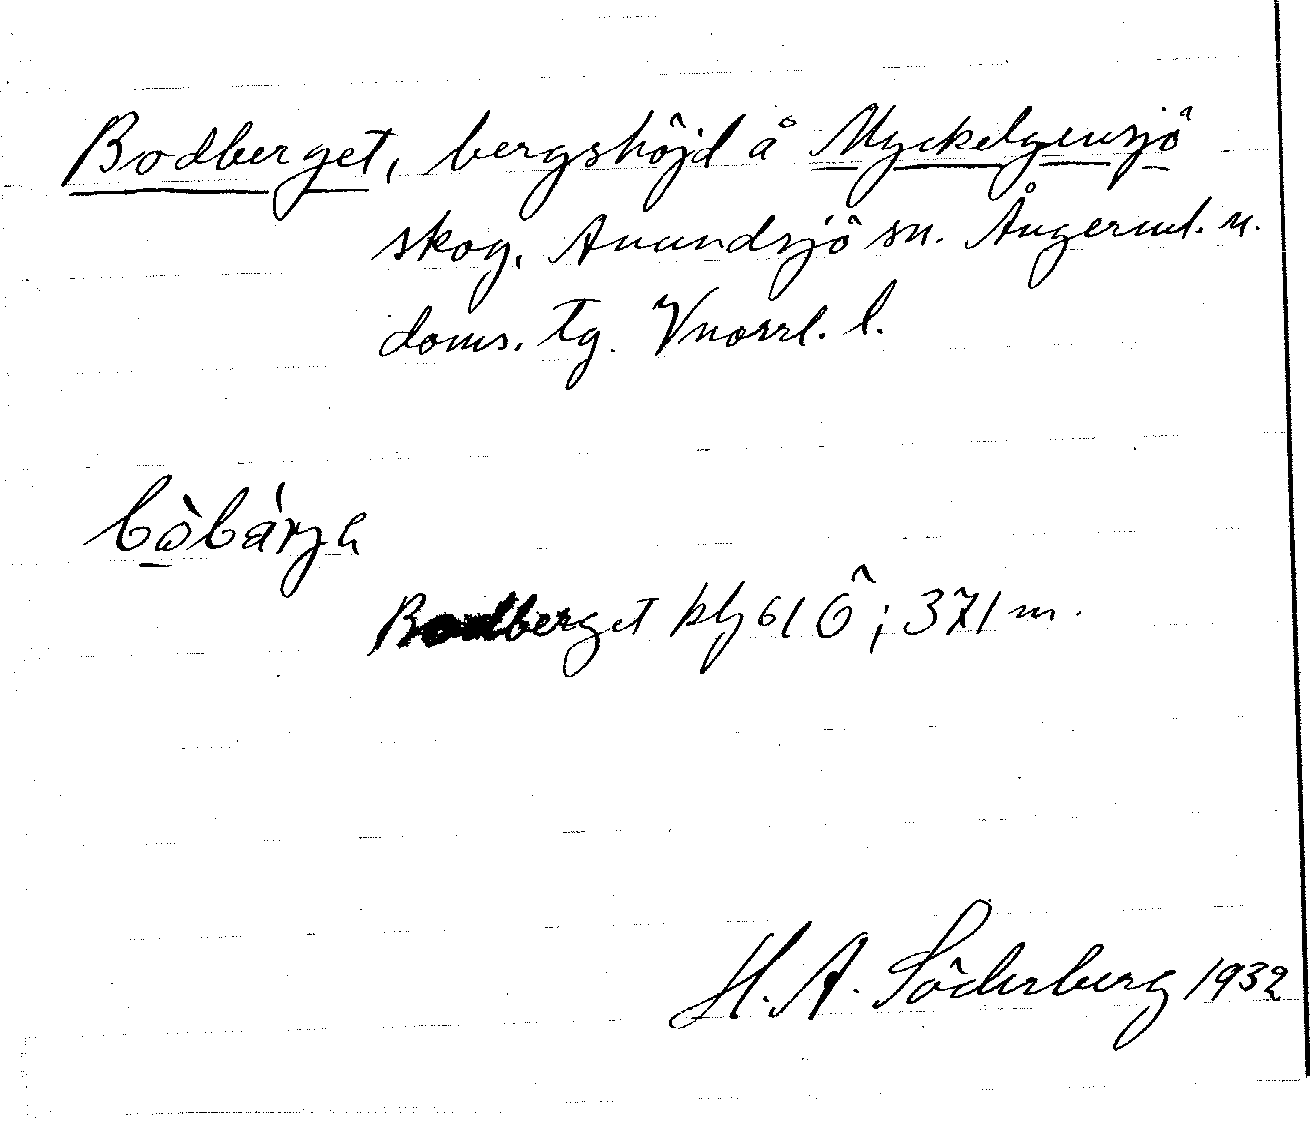 Bodberget, bergshöjd å Myckelgensjö
skog, Anundsjö sn. Ångerml. n.
doms. tg. Vnorrl. l.
bò̠bárja
Bodberget blj 61 Ö; 371 m.
H. A. Söderberg 1932